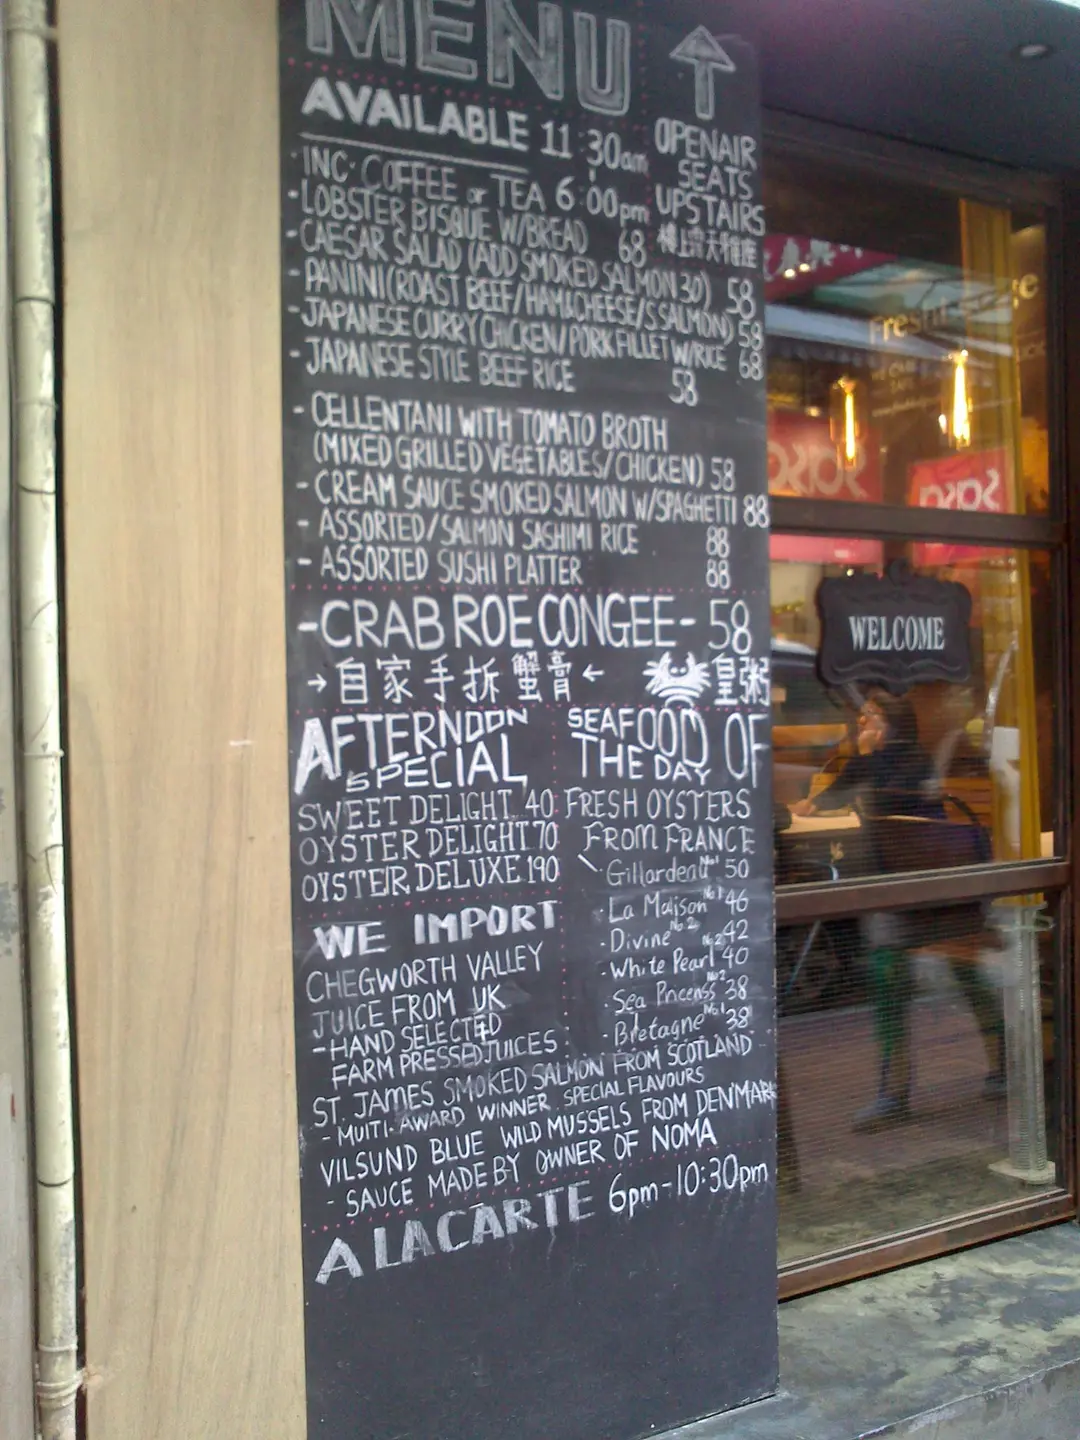 MENU ↑
AVAILABLE 11:30am
INC. COFFEE or TEA 6:00pm
OPENAIR
SEATS
UPSTAIRS
樓上露天雅座
- LOBSTER BISQUE W/BREAD 68
- CAESAR SALAD (ADD SMOKED SALMON 30) 58
- PANINI (ROAST BEEF/HAM&CHEESE/S.SALMON) 58
- JAPANESE CURRY CHICKEN/PORK FILLET W/RICE 68
- JAPANESE STYLE BEEF RICE 58
- CELLENTANI WITH TOMATO BROTH
(MIXED GRILLED VEGETABLES/CHICKEN) 58
- CREAM SAUCE SMOKED SALMON W/SPAGHETTI 88
- ASSORTED/SALMON SASHIMI RICE 88
- ASSORTED SUSHI PLATTER 88
- CRAB ROE CONGEE - 58
→ 自家手拆蟹膏 ← 皇粥
AFTERNOON
SPECIAL
SWEET DELIGHT 40
OYSTER DELIGHT 70
OYSTER DELUXE 190
SEAFOOD OF
THE DAY
FRESH OYSTERS
FROM FRANCE
Gillardeau No1 50
· La Maison No1 46
· Divine No2 42
· White Pearl No2 40
· Sea Pincenss No2 38
· Bretagne No1 38
WE IMPORT
CHEGWORTH VALLEY
JUICE FROM UK
- HAND SELECTED
FARM PRESSED JUICES
ST. JAMES SMOKED SALMON FROM SCOTLAND
- MULTI-AWARD WINNER, SPECIAL FLAVOURS
VILSUND BLUE WILD MUSSELS FROM DENMARK
- SAUCE MADE BY OWNER OF NOMA
A LA CARTE 6pm-10:30pm
WELCOME
sasa
sasa